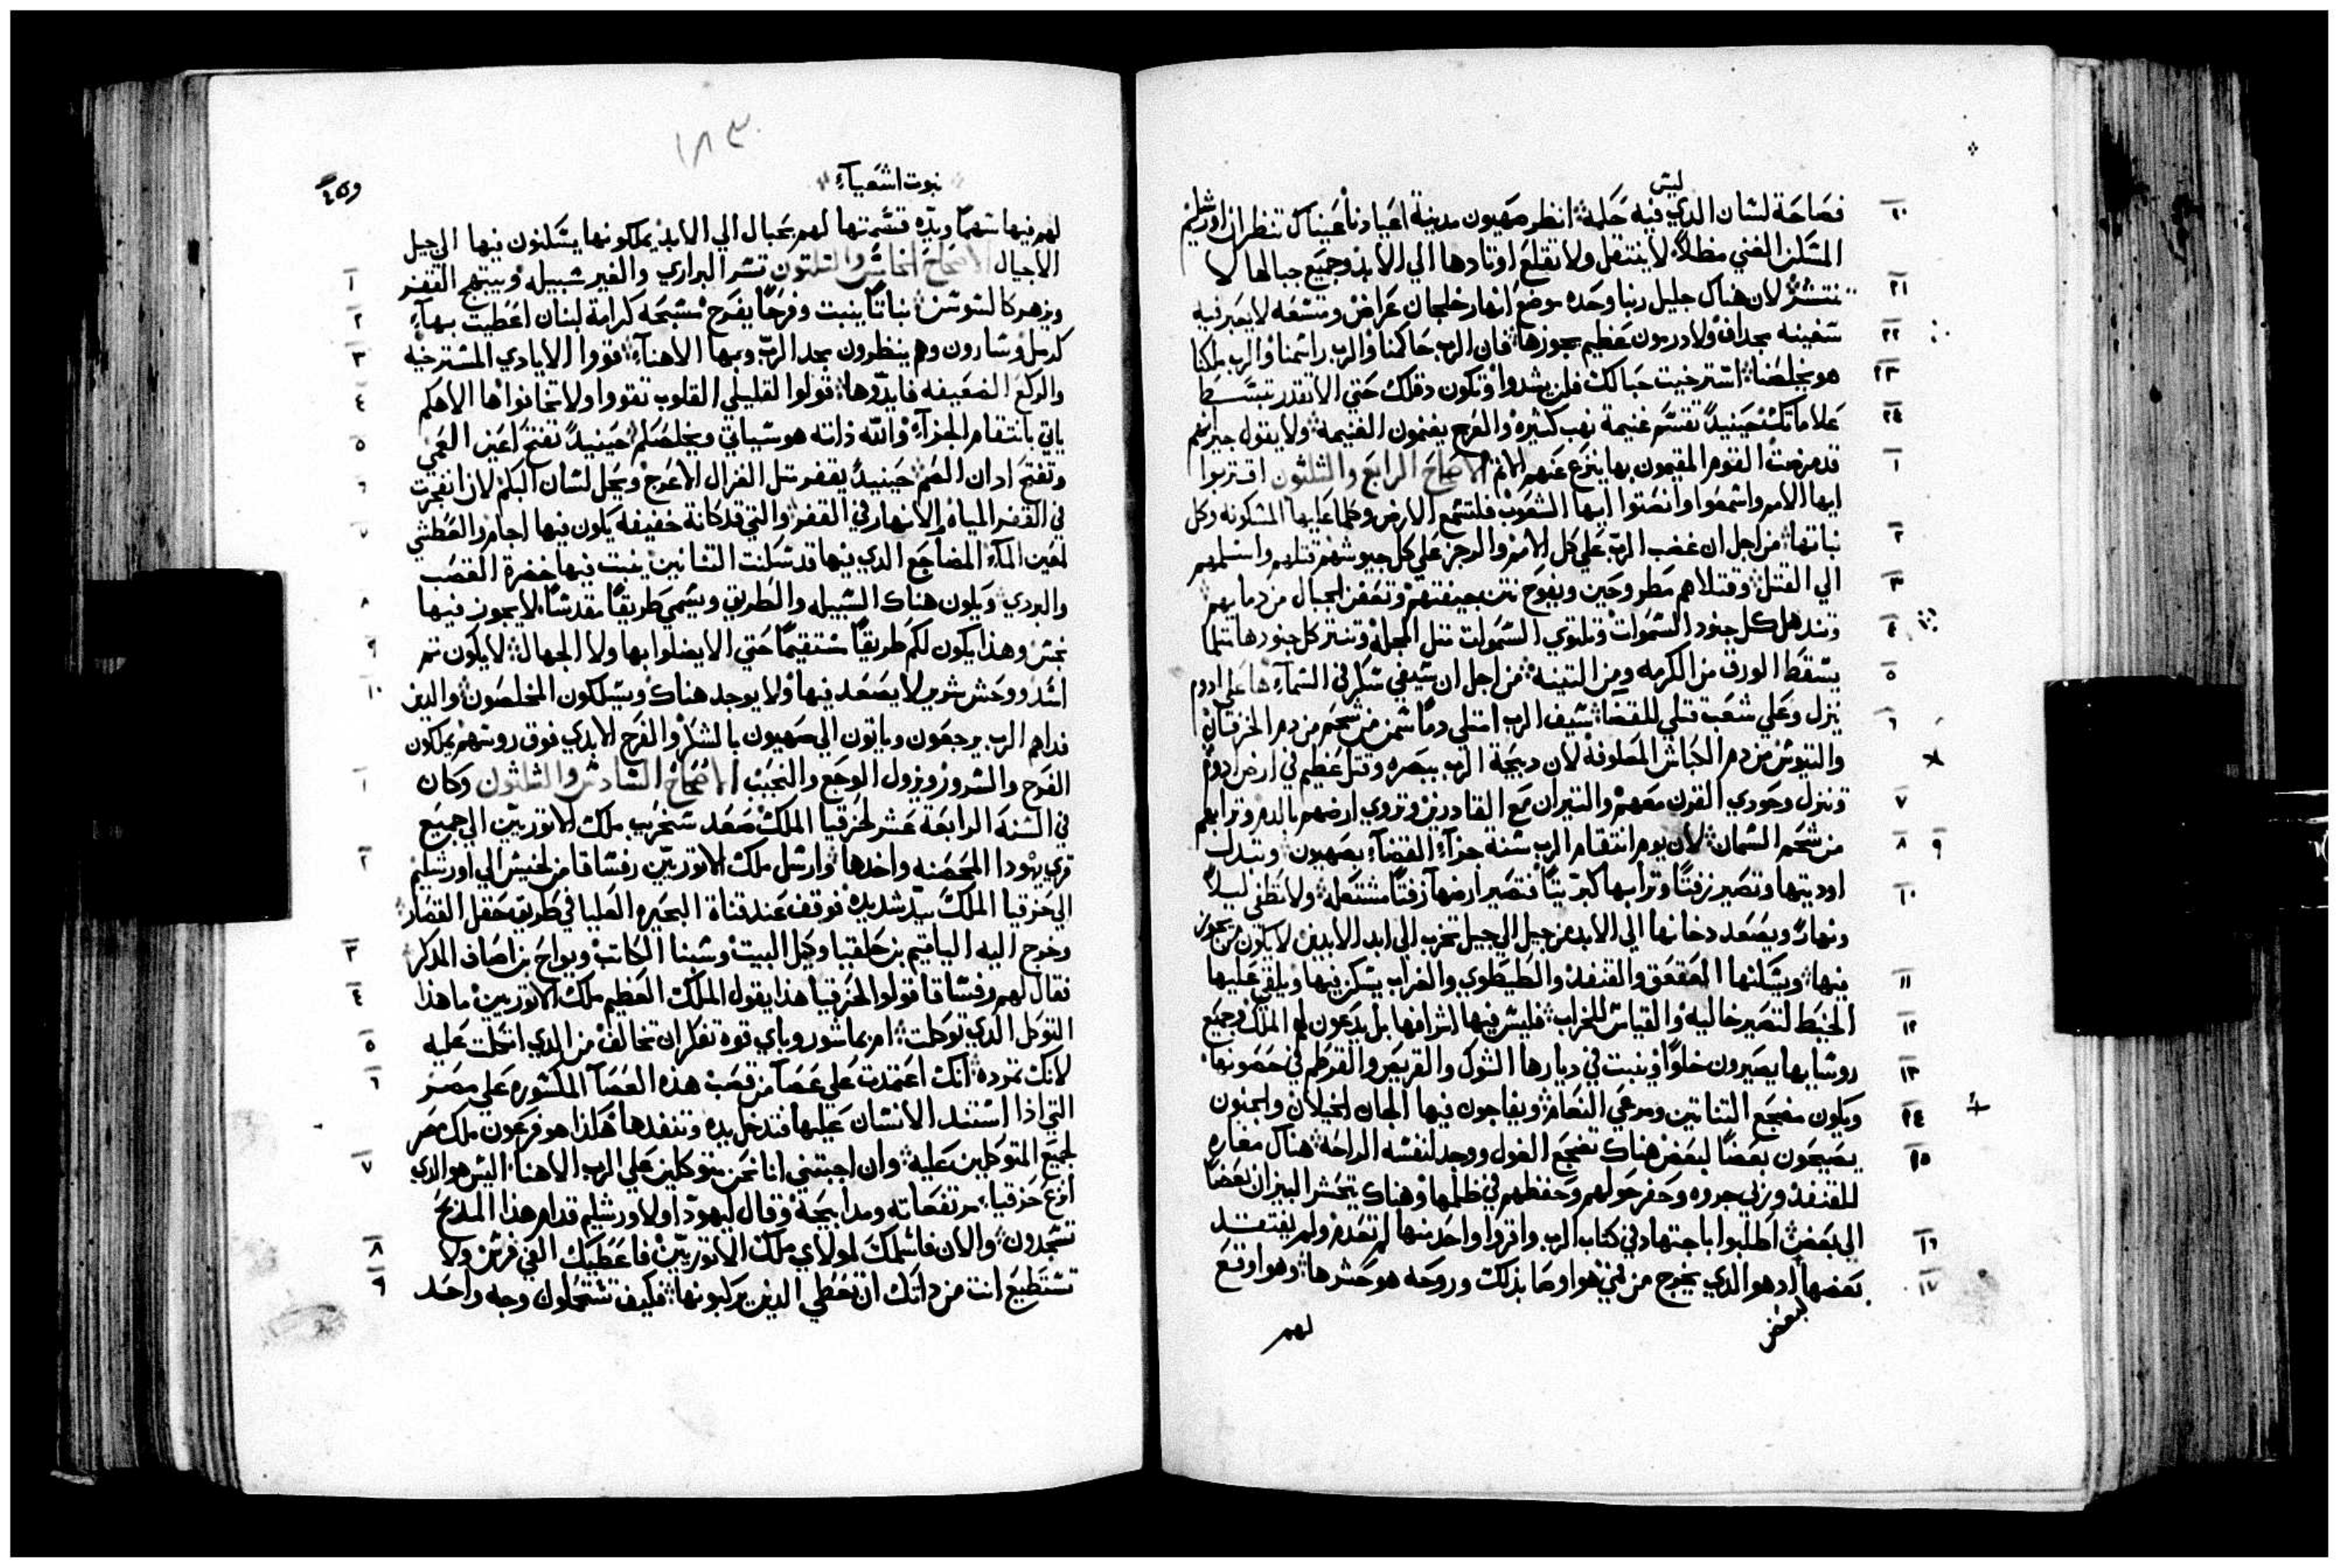 ليس
فصاحة لسان الدي فيه حلمة انظر صهيون مدينة اعيادنا عيناك تنظران اورشليم
المسكن الغني مظلاً لا ينتقل ولا تقلع اوتادها الي الابد وجميع حبالها لا
تنتشر لان هناك جليل ربنا وحده موضع انهار خلجان عراض ومتسعه لا يعبر فيه
سفينه بمجداف ولا درمون عظيم يجوزها فان الرب حاكمنا والرب راسمنا والرب ملكنا
هو يخلصنا استرخيت حبالك فلن يشدوا وتكون دقلك حتي لا تقدر تبسط
علاماتك حينيدً تقسم غنيمة نهب كثيره والعرج يغنمون الغنيمة ولا يقول جيرانهم
قد مرضت القوم المقيمون بها ينزع عنهم الاثم الاصحاح الرابع والثلثون اقتربوا
ايها الامم واسمعوا وانصتوا ايها الشعوب فلتسمع الارض وكلما عليها المسكونه وكل
نباتها من اجل ان غضب الرب علي كل الامم والرجز علي كل جيوشهم قتلهم واسلمهم
الي القتل وقتلاهم مطروحين ويفوح نتن جيفتهم وتعفن الجبال من دمايهم
وتندهل كل جنود السموات وتلتوي السموات مثل المجلة وتنتر كل جنودها مثلما
يسقط الورق من الكرمه ومن التينة من اجل ان سيفي سكر في السمآء ها علي ادوم
ينزل وعلي شعب قتلي للقضآء سيف الرب امتلي دماً سمن من شحم من دم الخرفان
والتيوس من دم الكباش المعلوفه لان دبيحة الرب ببصره وقتل عظيم في ارض ادوم
وتنزل وحودي القرن معهم والتيران مع القادرين وتروي ارضهم بالدم وترابهم
من شحم السمان لان يوم انتقام الرب سنة جزآء القضآء بصهيون وتبدلت
اوديتها وتصير زفتاً وترابها كبريتاً فتصير ارضها زفتاً مشتعله ولا تطفي ليلاً
ونهارً ويصعد دخانها الي الابد من جيل الي جيل تخرب الي ابد الابدين لا يكون من يجوز
فيها ويسكنها العقعق والقنفد والطيطوي والغراب يسكن فيها ويلقي عليها
الخيط لتصير خاليه والقياس للخراب فليس فيها اشرافها بل يدعون لهم الملك وجميع
روسايها يصيرون خلواً وينبت في ديارها الشوك والقريص والقرطم في حصونها
ويكون مضجع التنانين ومرعي النعام ويفاجون فيها الجان الخيلان والجنون
يصيحون بعضاً لبعض هناك تضجع الغول ووجد لنفسه الراحة هناك مغاره
للقنفد وربي جروه وحفر حولهم وحفظهم في ظلمها وهناك يتحشر البيزان بعضاً
الي بعض اطلبوا باجتهاد في كتاب الرب واقروا واحد منها لم تعدم ولم يفتقد
بعضها لدهو الدي يخرج من فمي هو اوصا بذلك وروحه هو حشرها وهو اوقع
لبعض
لهم
١٨٣
نبوت اشعيآء
لهم فيها سهماً ويده قسمتها لهم بحبال الي الابد يملكونها يسكنون فيها الي جيل
الاجيال الاصحاح الخامس والثلتون تسر البراري والغير سبيله ويبتهج القفر
ويزهر كالسوسن نباتاً ينبت وفرحاً يفرح مسبحه كرامة لبنان اعطيت بهآء
كرمل وسارون وهم ينظرون مجد الرب وبها الاهنآء قووا الايادي المسترخيه
والركع الضعيفه فايدوها قولوا لقليلي القلوب تقووا ولا تخافوا ها الاهكم
ياتي بانتقام الجزآء والله ذاته هو سياتي ويخلصكم حينيدً تفتح اعين العمي
وتفتح ادان الصم حينيدً يقفز متل الغزال الاعرج ويحل لسان البكم لان انفجرت
في القفر المياه والانهار في القفر والتي قد كانة خفيفه يكون فيها اجام والعطشي
لعين المآء المضاجع الدي فيها قد سكنت التنانين ينبت فيها خضرة القصب
والبردي ويكون هناك السبيله والطريق ويسمي طريقاً مقدساً لا يجوز فيها
نجس وهذا يكون لكم طريقاً مستقيماً حتي لا يضلوا بها ولا الجهال لا يكون تم
اسد ووحش شرير لا يصعد فيها ولا يوجد هناك ويسلكون المخلصون والدين
فداهم الرب يرجعون وياتون الي صهيون بالشكر والفرح الابدي فوق روسهم يملكون
الفرح والسرور ويزول الوجع والنحيب الاصحاح السادس والثلثون وكان
في السنة الرابعة عشر لحزقيا الملك صعد سنخريب ملك الاتوريين الي جميع
قري يهودا المحصنه واخدها وارسل ملك الاتوريين رفساقا من لخيش الي اورشليم
الي حزقيا الملك بيد شديده فوقف عند قناة البحيره العليا في طريق حقل القصار
وخرج اليه الياقيم بن حلقيا وكيل البيت وشبنا الكاتب ويواح بن اصاف المدكر
فقال لهم رفساقا قولوا لحزقيا هذا يقول الملك العظيم ملك الاتوريين ما هذا
التوكل الدي توكلت ام بما شور وباي قوه تفكر ان تخالف من الدي اتكلت عليه
لانك تمرده انك اعتمدت علي عصآ من قصب هذه العصآ المكسوره علي مصر
التي اذا استند الانسان عليها فتدخل بيده وتنفدها هكذا هو فرعون ملك مصر
لجميع المتوكلين عليه وان اجبتني انا نحن متوكلين علي الرب الاهنا اليس هو الدي
انزع حزقيا مرتفعاته ومدابحة وقال ليهودا ولاورشليم قدام هذا المدبح
تسجدون والان فاسلمك لمولاي ملك الاتوريين فاعطيك الفي فرس ولا
تستطيع انت من داتك ان تعطي الدين يركبونها فكيف تستحملون وجه واحد